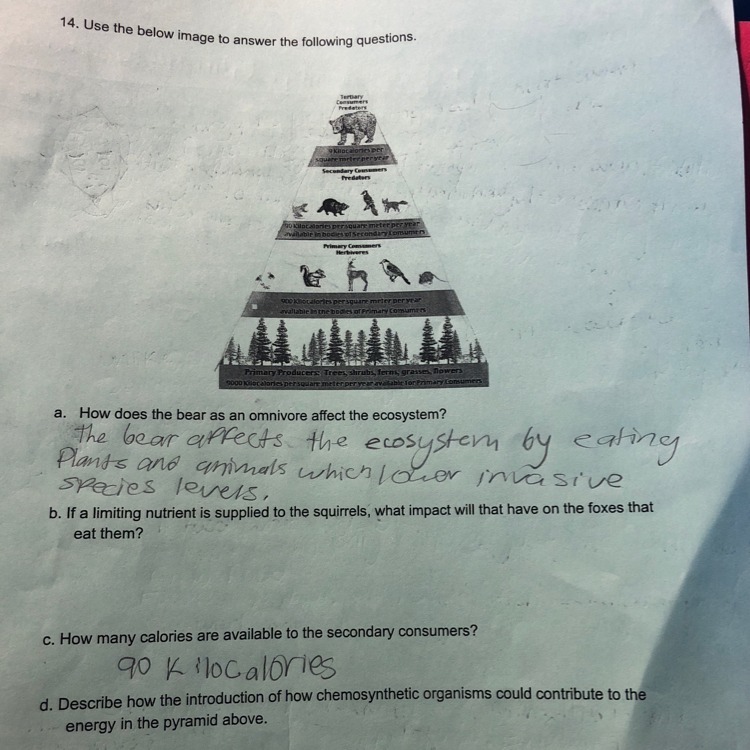 14. Use the below image to answer the following questions.
Tertiary
Consumers
Predators
9 Kilocalories per
square meter per year
Secondary Consumers
Predators
90 Kilocalories per square meter per year
available in bodies of Secondary Comumers
Primary Consumers
Herbivores
900 Kilocalories per square meter per year
available in the bodies of Primary Comumers
Primary Producers: Trees, shrubs, ferns, grasses, flowers
9000 Kilocalories per square meter per year available for Primary Comumers
a. How does the bear as an omnivore affect the ecosystem?
The bear affects the ecosystem by eating
Plants and animals which lower invasive
species levels.
b. If a limiting nutrient is supplied to the squirrels, what impact will that have on the foxes that
eat them?
c. How many calories are available to the secondary consumers?
90 Kilocalories
d. Describe how the introduction of how chemosynthetic organisms could contribute to the
energy in the pyramid above.